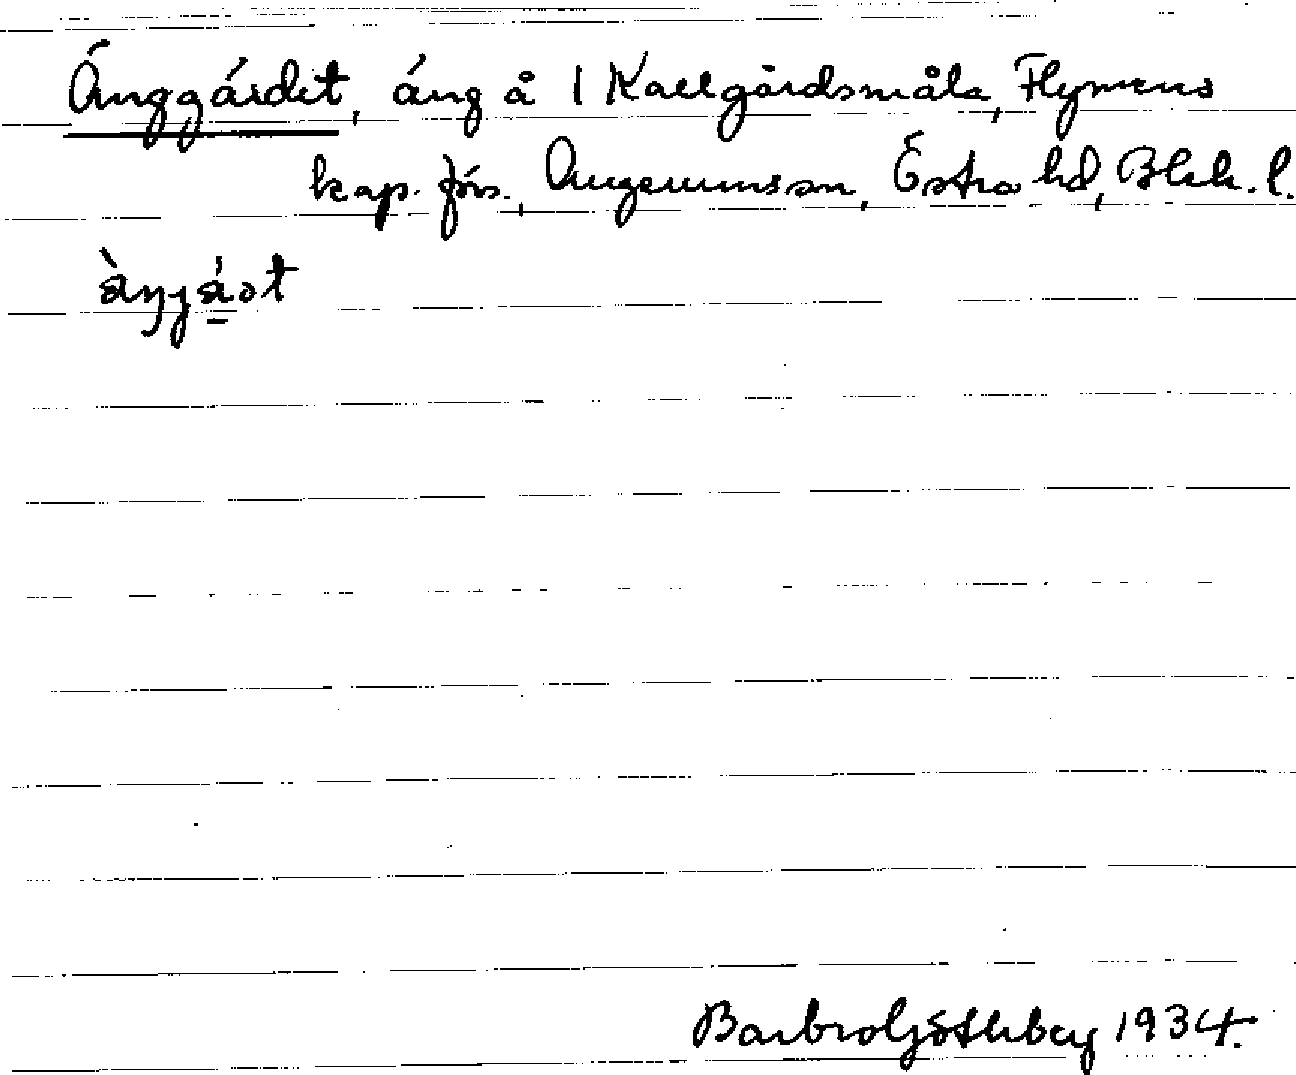 Änggärdet, äng å 1 Kallgårdsmåla, Flymens
kap. förs., Augerums sn, Östra hd, Blek. l.
Barbro Götherberg 1934.